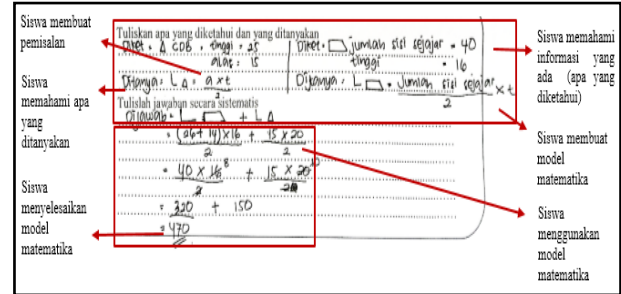 Siswa membuat
pemisalan
Siswa
memahami apa
yang
ditanyakan
Siswa
menyelesaikan
model
matematika
Tuliskan apa yang diketahui dan yang ditanyakan
Diket = Δ CDB . tinggi = 25
alas = 15
Diket = ⏢ jumlah sisi sejajar = 40
tinggi = 16
Ditanya = L Δ = a x t / 2
Ditanya = L ⏢ = Jumlah sisi sejajar / 2 x t
Tulislah jawaban secara sistematis
Dijawab = L ⏢ + L Δ
= (26 + 14) x 16 / 2 + 15 x 20 / 2
= 40 x 16 8 / 2 + 15 x 20 10 / 2
= 320 + 150
= 470
Siswa memahami
informasi yang
ada (apa yang
diketahui)
Siswa membuat
model
matematika
Siswa
menggunakan
model
matematika